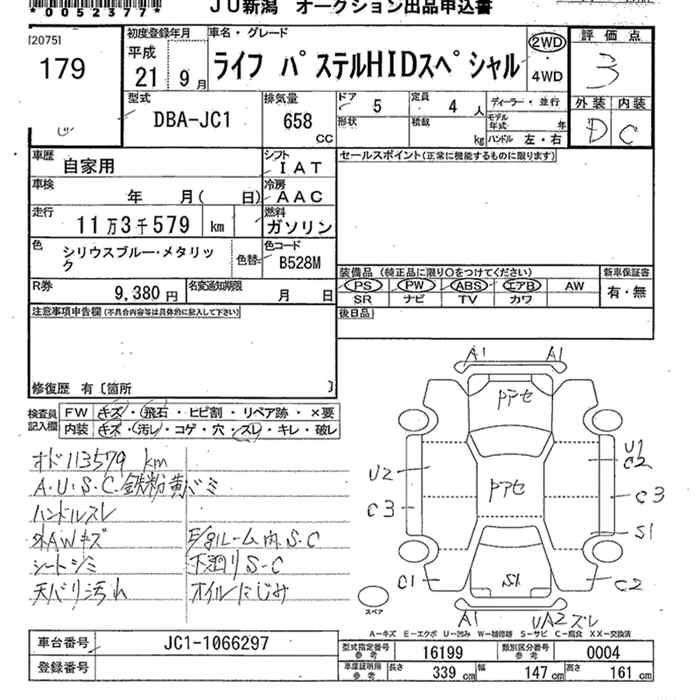 *0052377*
JU新潟 オークション出品申込書
[20751
179
初度登録年月
平成
21 9月
車名・グレード
ライフ パステルHIDスペシャル
2WD
4WD
評価点
3
外装 内装
D C
型式
DBA-JC1
排気量
658
cc
ドア 5
定員 4人
形状
積載 kg
ディーラー・並行
モデル年式 年
ハンドル 左・右
車歴
自家用
シフト
IAT
車検
年 月( 日)
冷房
AAC
走行
11万3千579 km
燃料
ガソリン
色
シリウスブルー・メタリック
色替
色コード
B528M
R券
9,380円
名変通知期限
月 日
セールスポイント(正常に機能するものに限ります)
装備品(純正品に限り○をつけてください)
PS PW ABS エアB AW
SR ナビ TV カワ
新車保証書
有・無
後日品
注意事項申告欄(不具合内容等は具体的に記入して下さい)
修復歴 有〔箇所 〕
検査員記入欄
FW キズ・飛石・ヒビ割・リペア跡・×要
内装 キズ・汚レ・コゲ・穴・スレ・キレ・破レ
オド113579 km
A・U・S・C 鉄粉黄バミ
ハンドルスレ
外AWキズ
シートシミ
天バリ汚れ
ルーム内S・C
下廻りS-C
オイルにじみ
A1 A1
Pアセ
U1
C2
U2
Pアセ
C3
C3
S1
C1
S1
C2
スペア
A1
UA2 ズレ
A−キズ E−エクボ U−凹み W−補修跡 S−サビ C−腐食 XX−交換済
車台番号
JC1-1066297
登録番号
型式指定番号 参考
16199
類別区分番号 参考
0004
車庫証明用 参考
長さ 339cm
幅 147cm
高さ 161cm